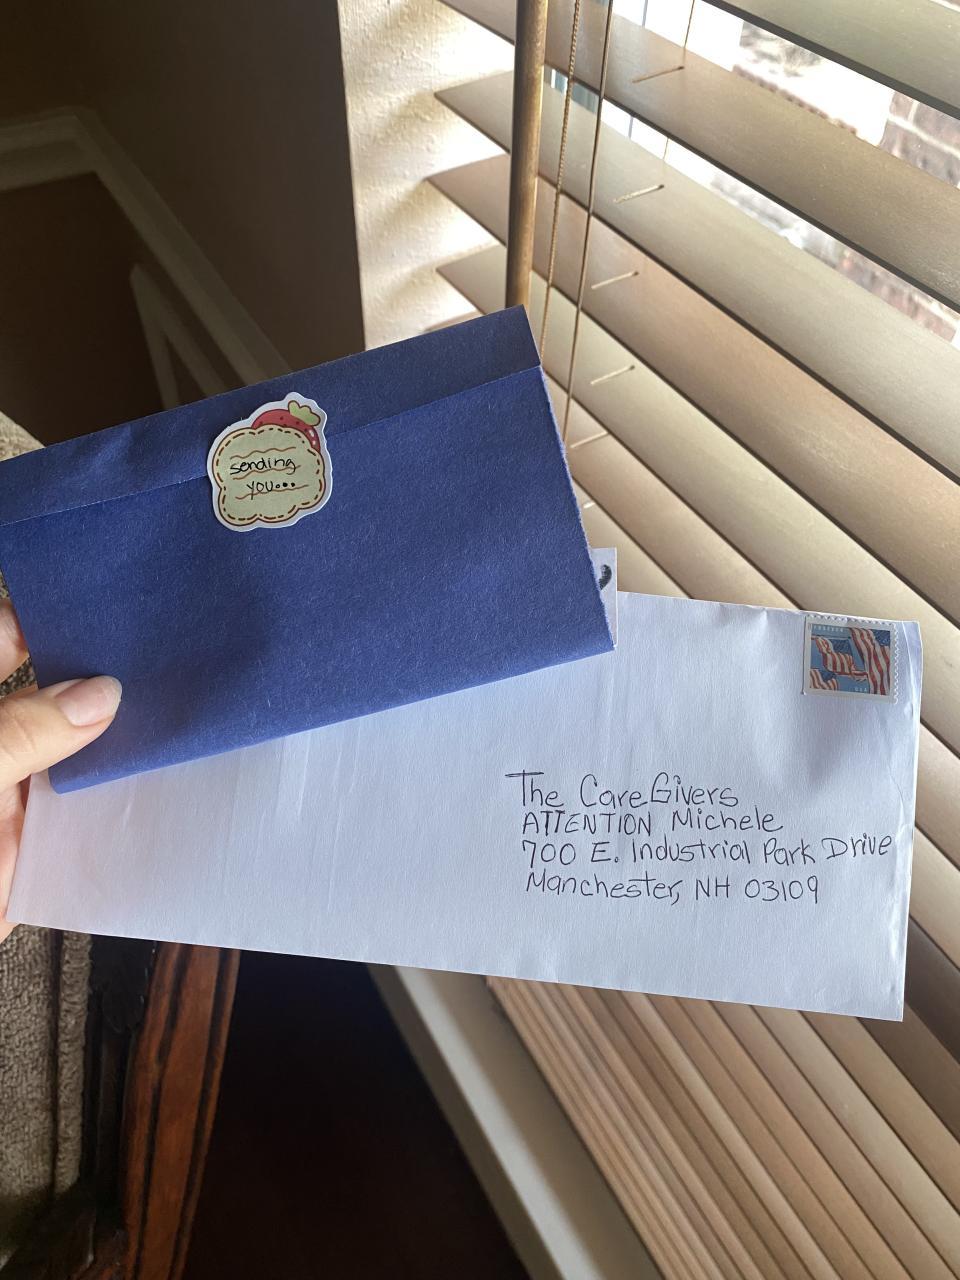 sending
you...
FOREVER
USA
The CareGivers
ATTENTION Michele
700 E. Industrial Park Drive
Manchester, NH 03109